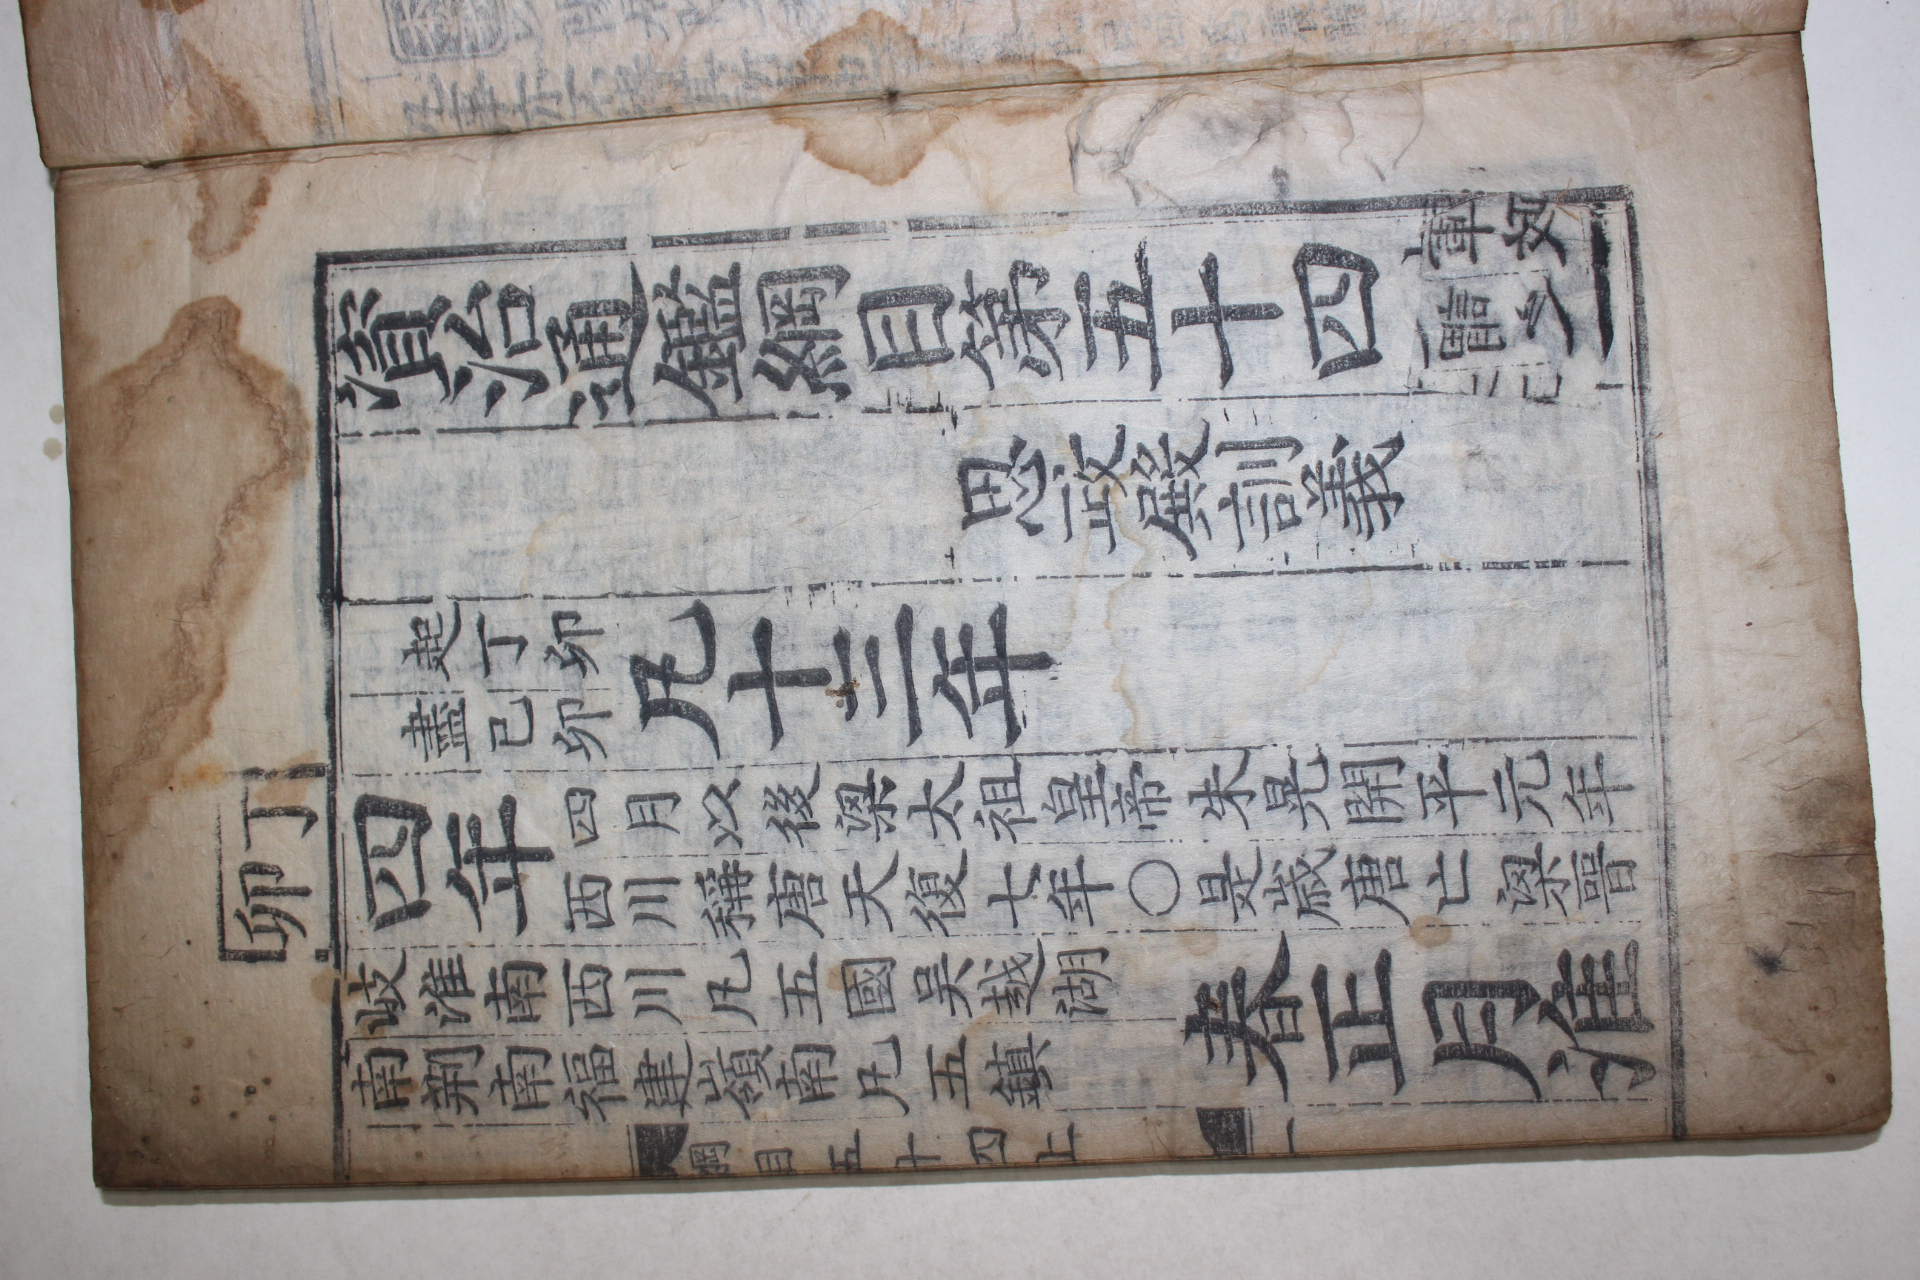 資治通鑑綱目第五十四
思政殿訓義
起丁卯
盡已卯
凡十三年
丁卯
四年
四月以後梁太祖皇帝朱晃開平元年
西川稱唐天復七年〇是歲唐亡梁晉
岐淮南西川凡五國吳越湖
南荆南福建嶺南凡五鎮
春正月淮
綱目五十四上
一